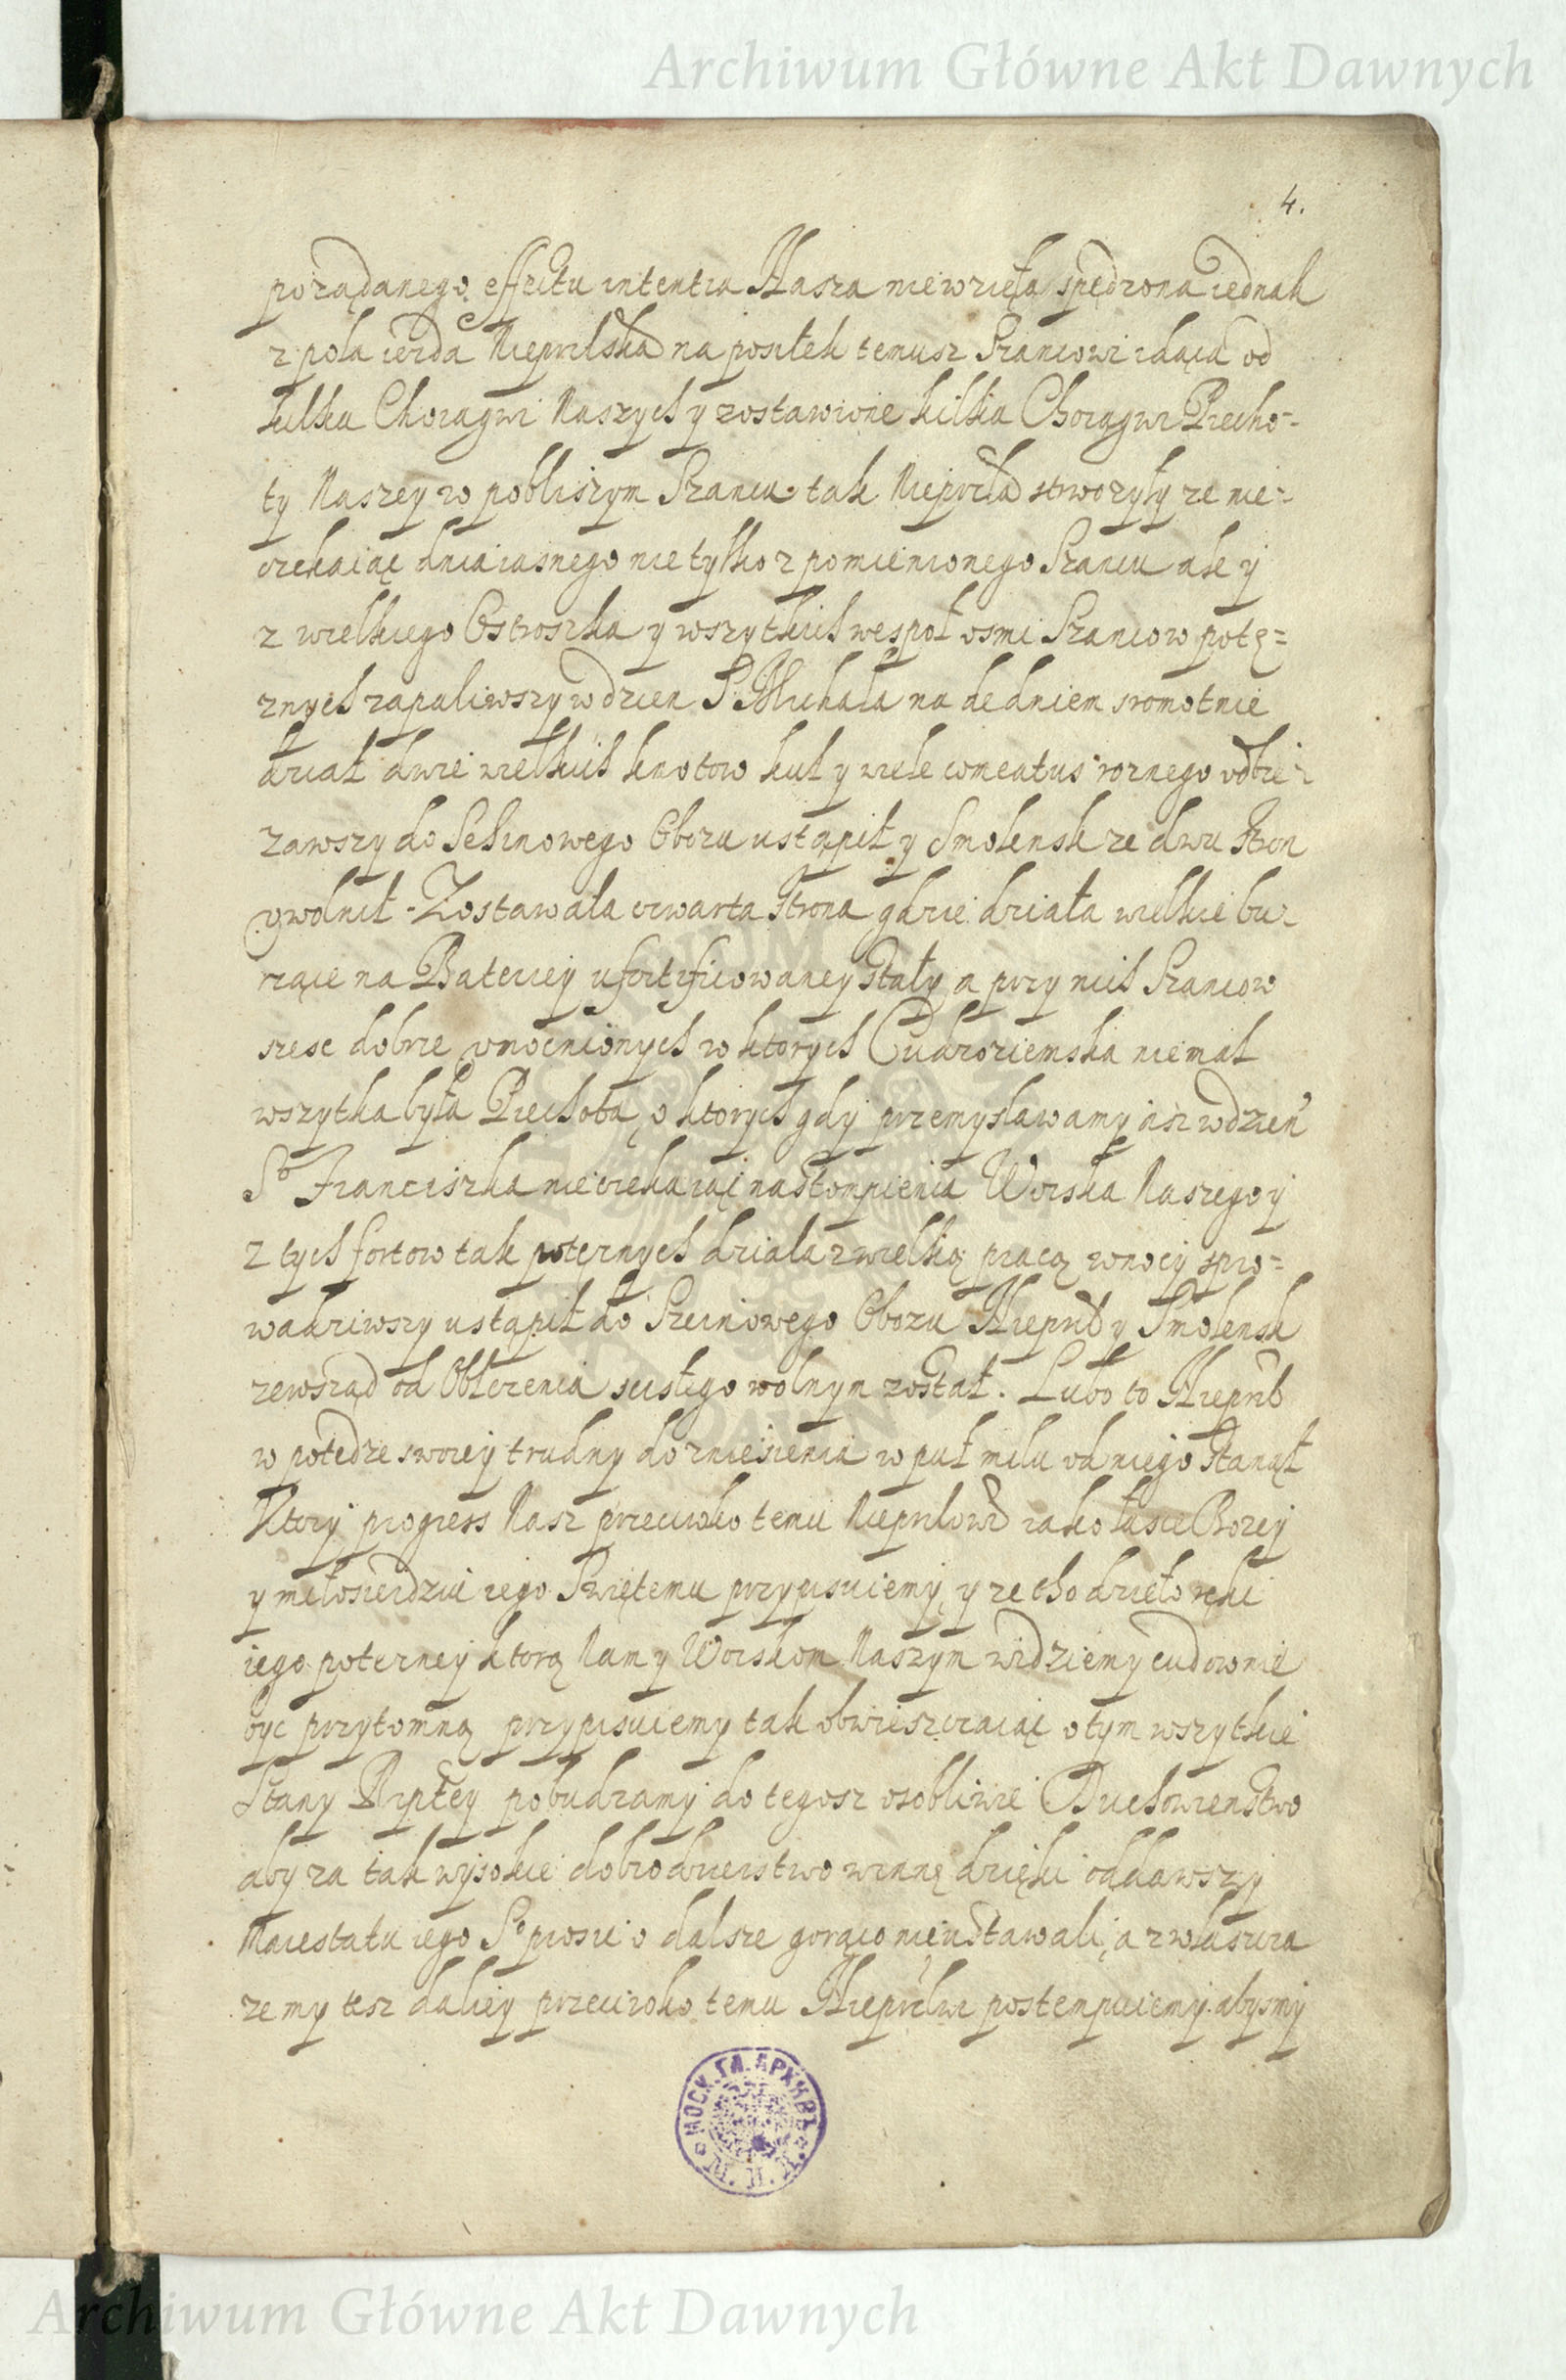 Archiwum Główne Akt Dawnych
4.
porządanego effectu intentia Nasza niewzięła spędzona iednak
z pola iezda Nieprzlska na posiłek temusz Szancowi idąca od
kilku Choragwi Naszych y zostawione kilka Chorągwi Piecho-
ty Naszey w pobliszym Szancu tak Nieprzla strwozyły ze nie-
czekaiąc dnia iasnego nie tylko z pomienionego Szancu ale y
z wielkiego Ostroszka y wszytkich wespoł osmi Szancow potę-
znych zapaliwszy w dzien S Michała na de dniem sromotnie
dział dwie wielkich knotow kul y wiele comeatus roznego odbie-
zawszy do Sehinowego Obozu ustąpił y Smolensk ze dwu stron
uwolnił. Zostawała czwarta strona gdzie działa wielkie bu-
rzące na Bateriey ufortificowaney stały a przy nich Szancow
szesc dobrze umocnionych w ktorych Cudzoziemska niemal
wszytka była Piechota, o ktorych gdy przemyslawamy asz w dzień
So Franciszka nieczekaiąc nastompienia Woiska Naszego y
z tych fortow tak potęznych działa z wielką pracą w nocy spro-
wadziwszy ustąpił do Szeinowego Obozu Nieprzl y Smolensk
zewsząd od Oblezenia scisłego wolnym został. Lubo to Nieprzl
w potedze swoiey trudny do zniesienia w puł milu od niego stanął
Ktory progress Nasz przeciwko temu Nieprzlowi iako łasce Bozey
y miłosierdziu iego Swiętemu przypisuiemy, y ze tho dzieło ręki
iego potezney ktorą Nam y Woiskom Naszym widziemy cudownie
byc przytomną przypisuiemy tak obwieszczaiąc o tym wszytkie
Stany Rzptey pobudzamy do tegosz osobliwie Duchowienstwo
aby za tak wysokie dobrodzieistwo winnę dzięki oddawszy
Maiestatu iego So prosic o dalsze gorąco nieustawali, a zwłaszcza
ze my tesz daliey przeciwko temu Nieprzlwi postempuiemy abysmy
МОСК. ГЛ. АРХИВЪ
Archiwum Główne Akt Dawnych